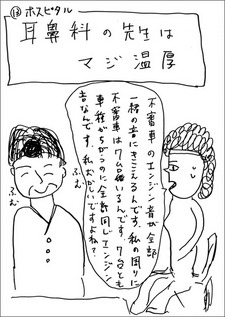 ⑬ホスピタル
耳鼻科の先生は
マジ温厚
不審車のエンジン音が全部
一緒の音にきこえるんです。私の周りに
不審車は7台位いるんです。7台とも
車種がちがうのに全部同じエンジン
音なんです。私おかしいですよね?
ふむ
ふむ